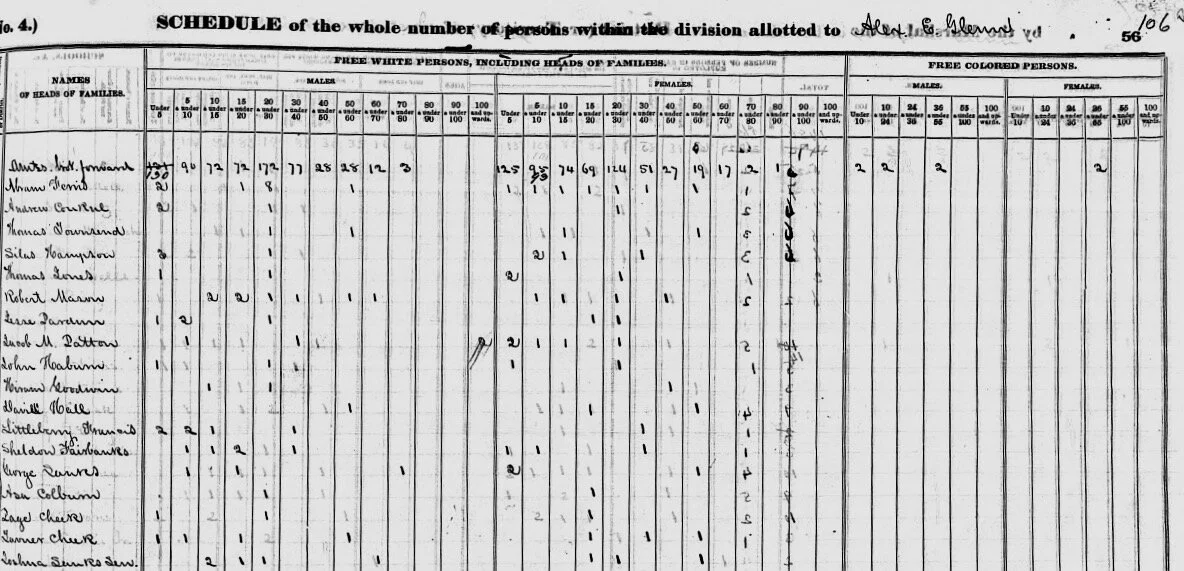 No. 4.) SCHEDULE of the whole number of persons within the division allotted to Alex E Glenn 56 106
NAMES OF HEADS OF FAMILIES. FREE WHITE PERSONS, INCLUDING HEADS OF FAMILIES. FREE COLORED PERSONS.
MALES FEMALES. MALES. FEMALES.
Under 5 5 & under 10 10 & under 15 15 & under 20 20 & under 30 30 & under 40 40 & under 50 50 & under 60 60 & under 70 70 & under 80 80 & under 90 90 & under 100 100 and upwards. Under 5 5 & under 10 10 & under 15 15 & under 20 20 & under 30 30 & under 40 40 & under 50 50 & under 60 60 & under 70 70 & under 80 80 & under 90 90 & under 100 100 and upwards. Under 10 10 & under 24 24 & under 36 36 & under 55 55 & under 100 100 and upwards. Under 10 10 & under 24 24 & under 36 36 & under 55 55 & under 100 100 and upwards.
Amts. brt. forward 130 90 72 72 172 77 28 28 12 3 125 95 74 69 124 51 27 19 17 2 1 2 2 2 2
Abram Ferris 2 1 8 1 1 1 1 1 1 1 1
Andrew 2 1 1
Thomas Townsend 1 1 1 1
Silas Hampson 3 1 2 1 1
Thomas Jones 1 1 2 1
Robert Mason 2 2 1 1 1 1 1 1 1 1
Jesse Pardun 1 2 1 1 1
Jacob M. Patton 1 1 2 2 1 1 1
John 1 1 1 1
Hiram Goodwin 1 1 1
Hall 1 1 1
Littleberry Francis 2 2 1 1 1
Sheldon Fairbanks 1 1 2 1 1 1 1
George Lunkes 1 1 1 2 1
Asa Colburn 1 1
Page Cheek 1 1 1
Turner Cheek 1 1 1 1 1 1 1
Joshua Sen. 2 1 1 1 1 1 1